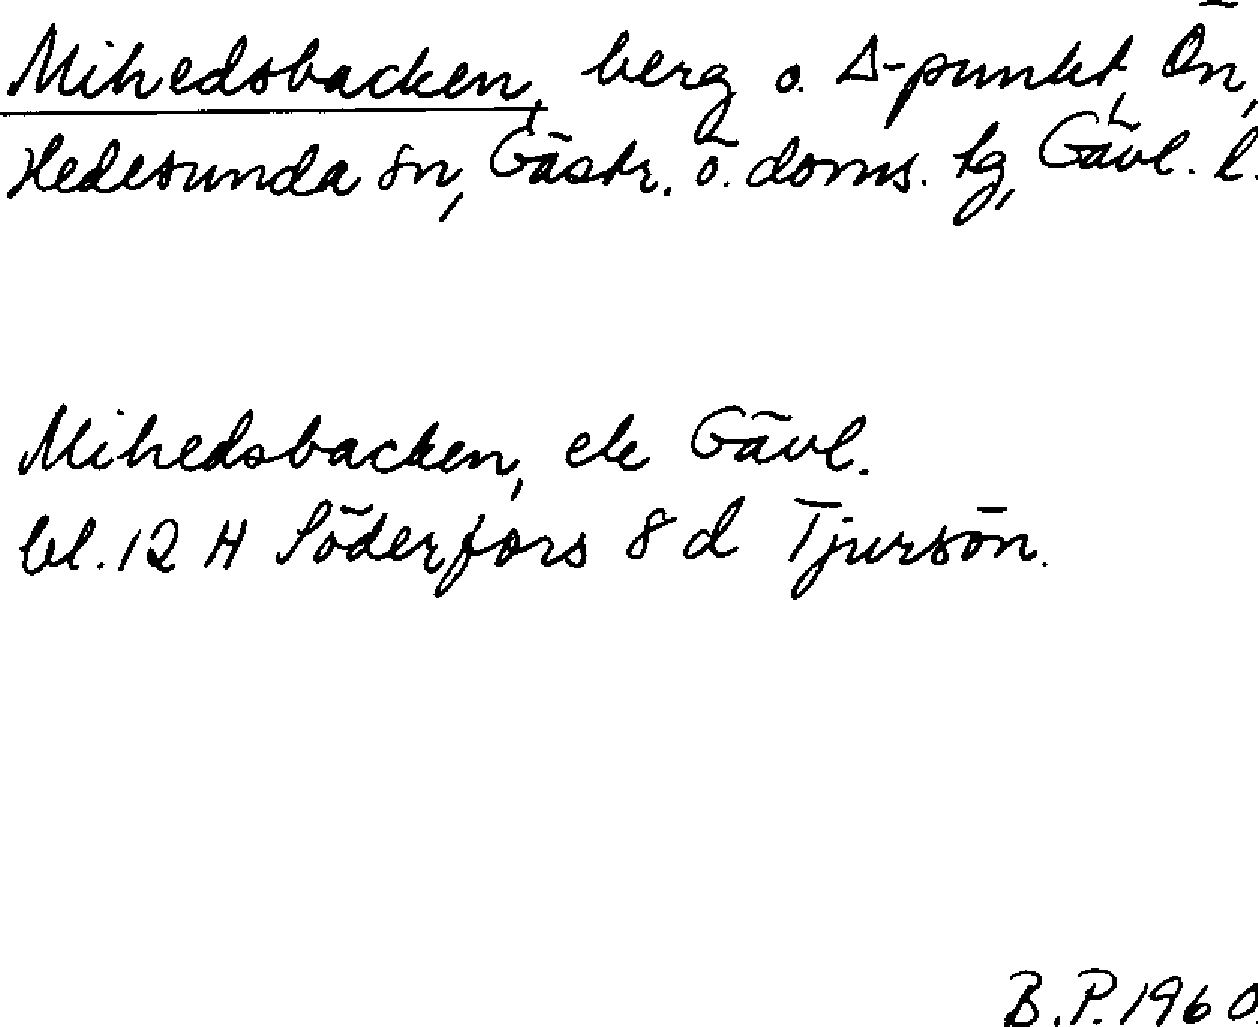 Mihedsbacken, berg o. ∆-punkt, Ön,
Hedesunda sn, Gästr. ö. doms. tg, Gävl. l.
Mihedsbacken, ek Gävl.
bl. 12 H Söderfors 8 d Tjursön.
B.P. 1960.